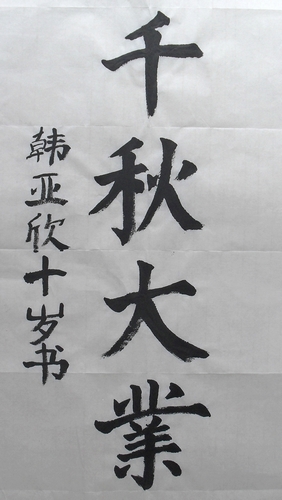 千秋大業
韩亚欣十岁书